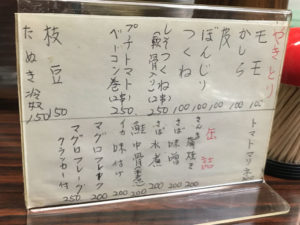 やきとり
モモ 100
かしら 100
皮 100
ぼんじり 100
つくね 100
しそつくね(2本) 250
(軟骨入り)
プチトマト
ベーコン巻(2本) 250
枝豆 150
たぬき冷奴 150
トマトマリネ
缶詰
さんま蒲焼き 200
さば味噌 200
さば水煮 200
鮭中骨煮 200
イカ味付け 200
マグロフレーク 200
マグロフレーク
クラッカー付 250